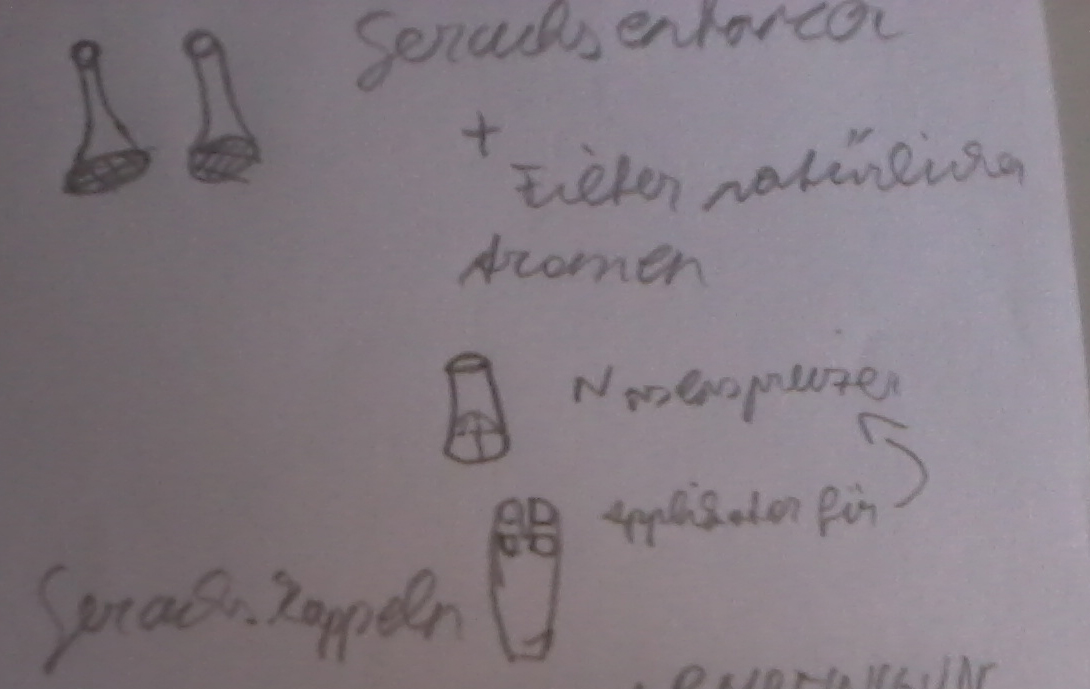 Geruchsentferner
+
Filter natürlicher
Aromen
Nasenspreizer
Applikator für
Geruchs. Kappeln